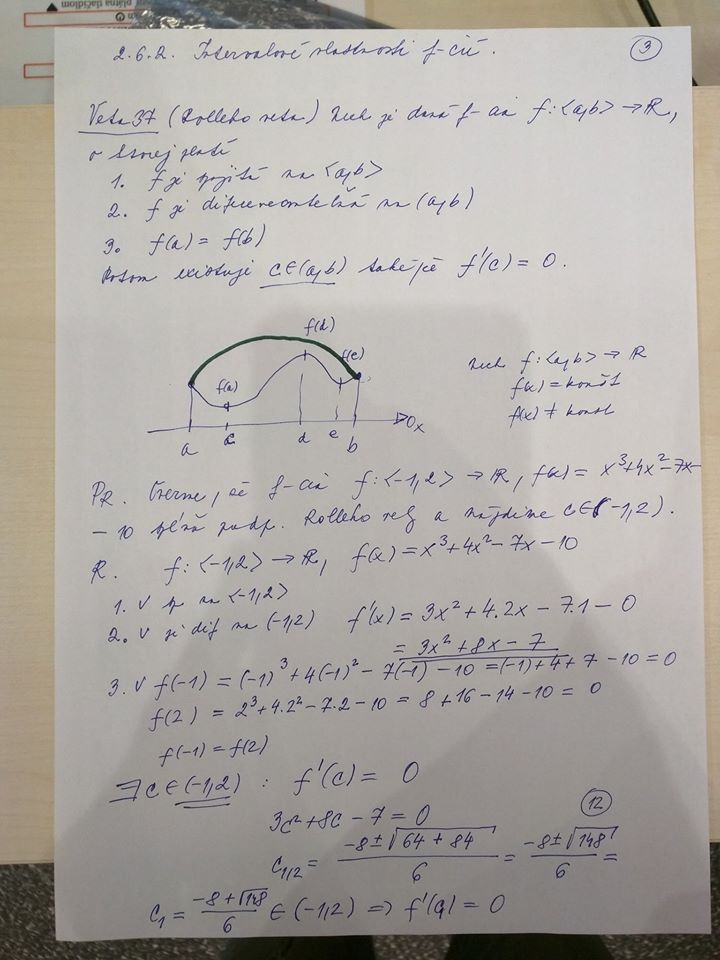 2.6.2. Intervalové vlastnosti f-cií. 3
Veta 37 (Rolleho veta) Nech je daná f-cia f: <a,b> → R,
o ktorej platí
1. f je spojitá na <a,b>
2. f je diferencovateľná na (a,b)
3. f(a) = f(b)
Potom existuje c∈(a,b) také, že f'(c) = 0.
f(d)
f(a) f(e)
a c d e b 0x
Nech f: <a,b> → R
f(x) = konšt
f(x) ≠ konst
PR. Overme, že f-cia f: <-1,2> → R, f(x) = x³+4x²-7x-
- 10 spĺňa predp. Rolleho vety a nájdime c∈(-1,2).
R. f: <-1,2> → R, f(x) = x³+4x²-7x-10
1. √ sp na <-1,2>
2. √ je dif na (-1,2) f'(x) = 3x² + 4.2x - 7.1 - 0
= 3x² + 8x - 7
3. √ f(-1) = (-1)³ + 4(-1)² - 7(-1) - 10 = (-1) + 4 + 7 - 10 = 0
f(2) = 2³ + 4.2² - 7.2 - 10 = 8 + 16 - 14 - 10 = 0
f(-1) = f(2)
∃ c ∈ (-1,2) : f'(c) = 0
3c² + 8c - 7 = 0 12
c1,2 = (-8 ± √(64 + 84))/6 = (-8 ± √148)/6 =
c1 = (-8 + √148)/6 ∈ (-1,2) => f'(c1) = 0